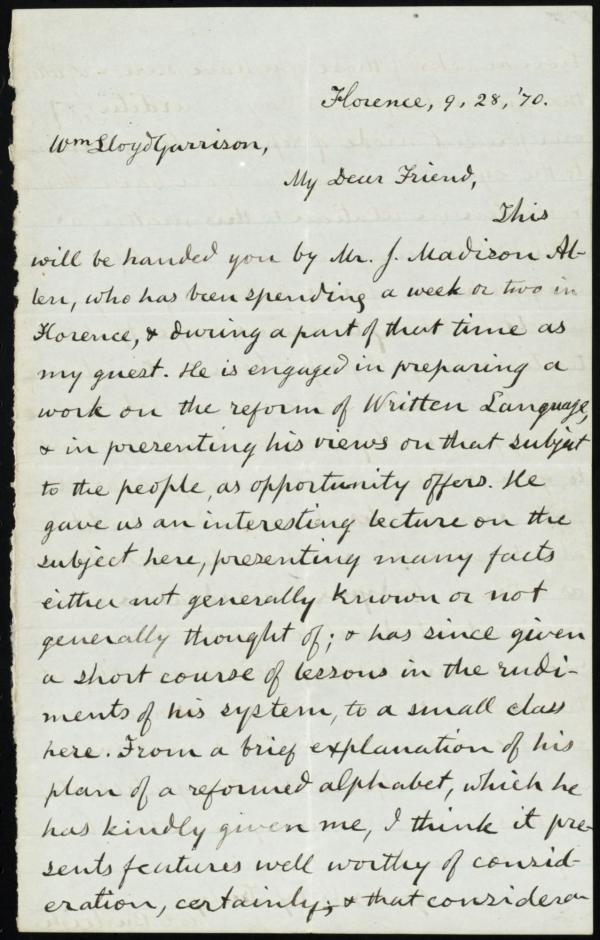 Florence, 9, 28, '70.
Wm Lloyd Garrison,
My Dear Friend,
This
will be handed you by Mr. J. Madison Al-
len, who has been spending a week or two in
Florence, & during a part of that time as
my guest. He is engaged in preparing a
work on the reform of Written Language,
& in presenting his views on that subject
to the people, as opportunity offers. He
gave us an interesting lecture on the
subject here, presenting many facts
either not generally known or not
generally thought of; & has since given
a short course of lessons in the rudi-
ments of his system, to a small class
here. From a brief explanation of his
plan of a reformed alphabet, which he
has kindly given me, I think it pre-
sents features well worthy of consid-
eration, certainly; & that considera-